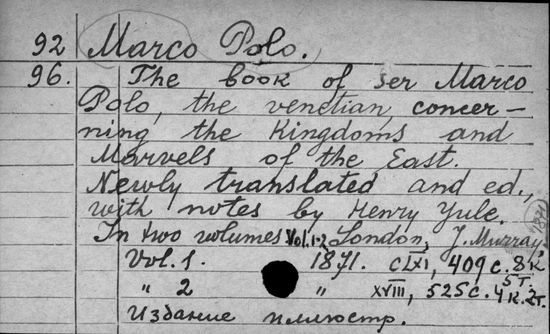 92 Marco Polo.
96. The book of ser Marco
Polo, the venetian concer-
ning the Kingdoms and
Marvels of the East.
Newly translated and ed.,
with notes by Henry Yule.
In two volumes Vol.1-2 London, J. Murray, 1871
Vol. 1. 1871. CLXI, 409 с. 8 к
5 т.
" 2 " XVIII, 525 с. 4 к. 2 т.
Издание иллюстр.